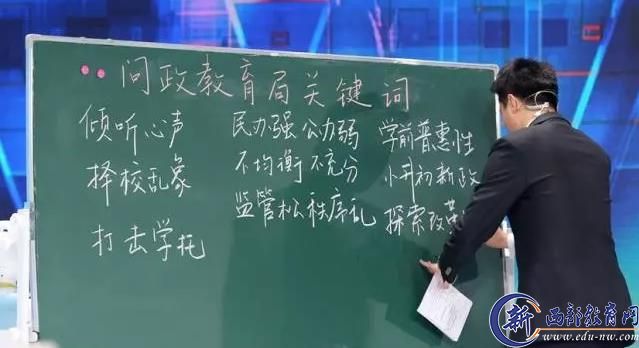 问政教育局关键词
倾听心声 民办强公办弱 学前普惠性
择校乱象 不均衡不充分 小升初新政
打击学托 监管松秩序乱 探索改革
新 西部教育网
www.edu-nw.com